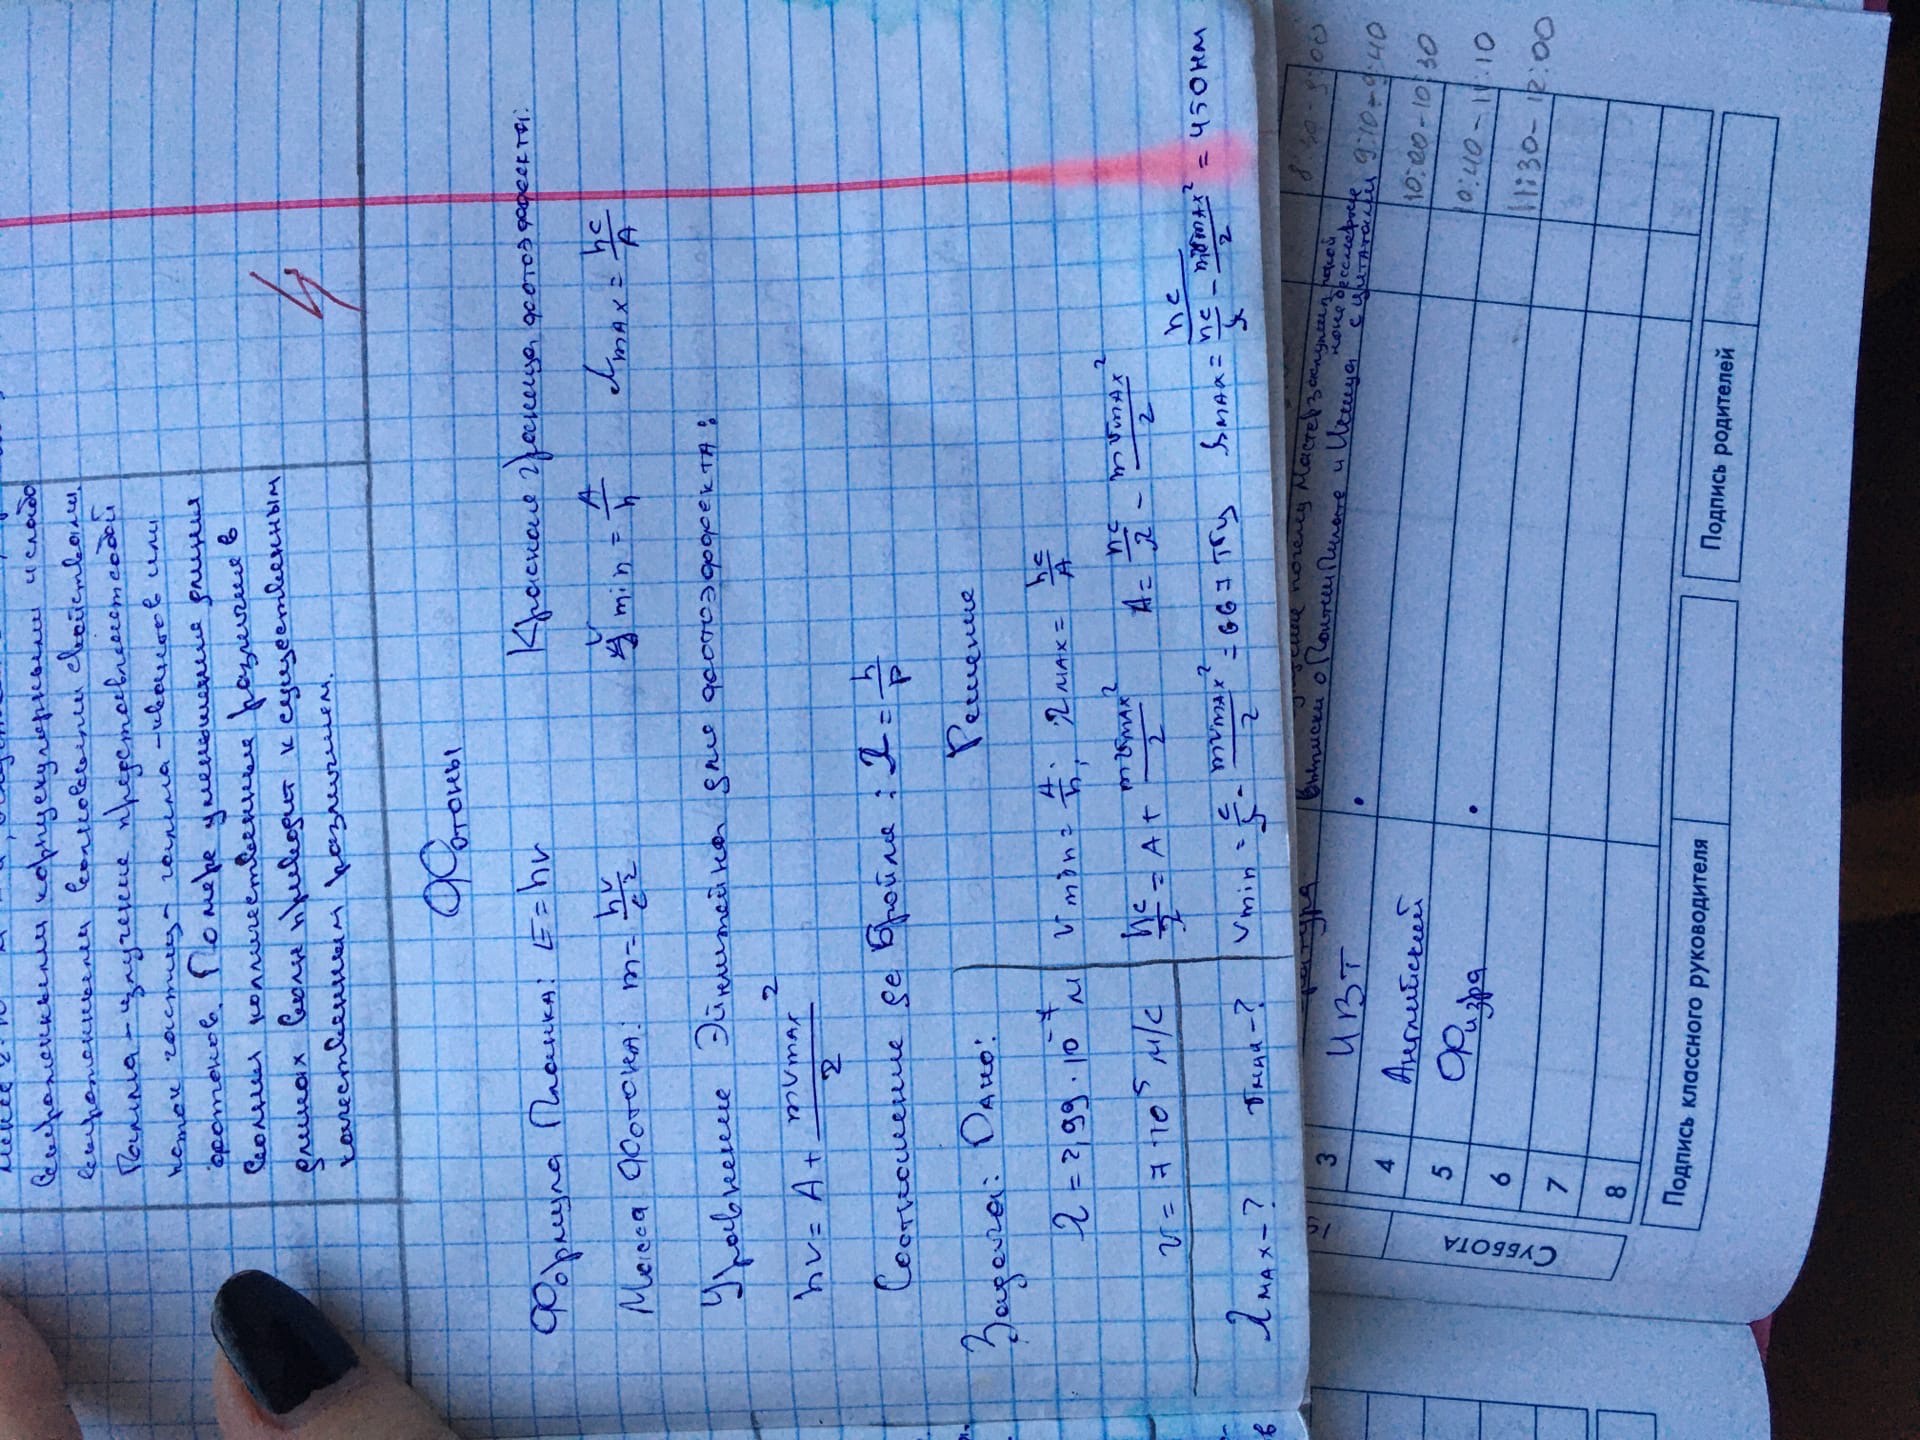 выраженными корпускулярными и слабо
выраженными волновыми свойствами.
Гамма-излучение представляет собой
поток частиц - гамма-квантов или
фотонов. По мере уменьшения длины
волны колличественные различия в
длинах волн приводят к существенным
качественным различием.
4
Фотоны
Формула Планка: E=hν
Красная граница фотоэффекта:
Масса фотона: m = hν/c²
ν min = A/h
λmax = hc/A
Уравнение Эйнштейна для фотоэффекта:
hν = A + mVmax²/2
Соотношение де Бройля: λ = h/p
Задача: Дано:
Решение
λ = 2,99·10⁻⁷ м
νmin = A/h; λmax = hc/A
v = 7·10⁵ м/с
hc/λ = A + mvmax²/2
A = hc/λ - mvmax²/2
λmax-?
νmin = c/λ - mvmax²/2 = 667 ТГц
λmax = hc/(hc/λ - mvmax²/2) = 450 нм
выписки о Понтии Пилате и Иешуа с цитатами
8:30-9:00
3
ИВТ
9:10-9:40
4
Английский
10:00-10:30
5
Физра
10:40-11:10
6
11:30-12:00
7
8
СУББОТА
Подпись классного руководителя
Подпись родителей